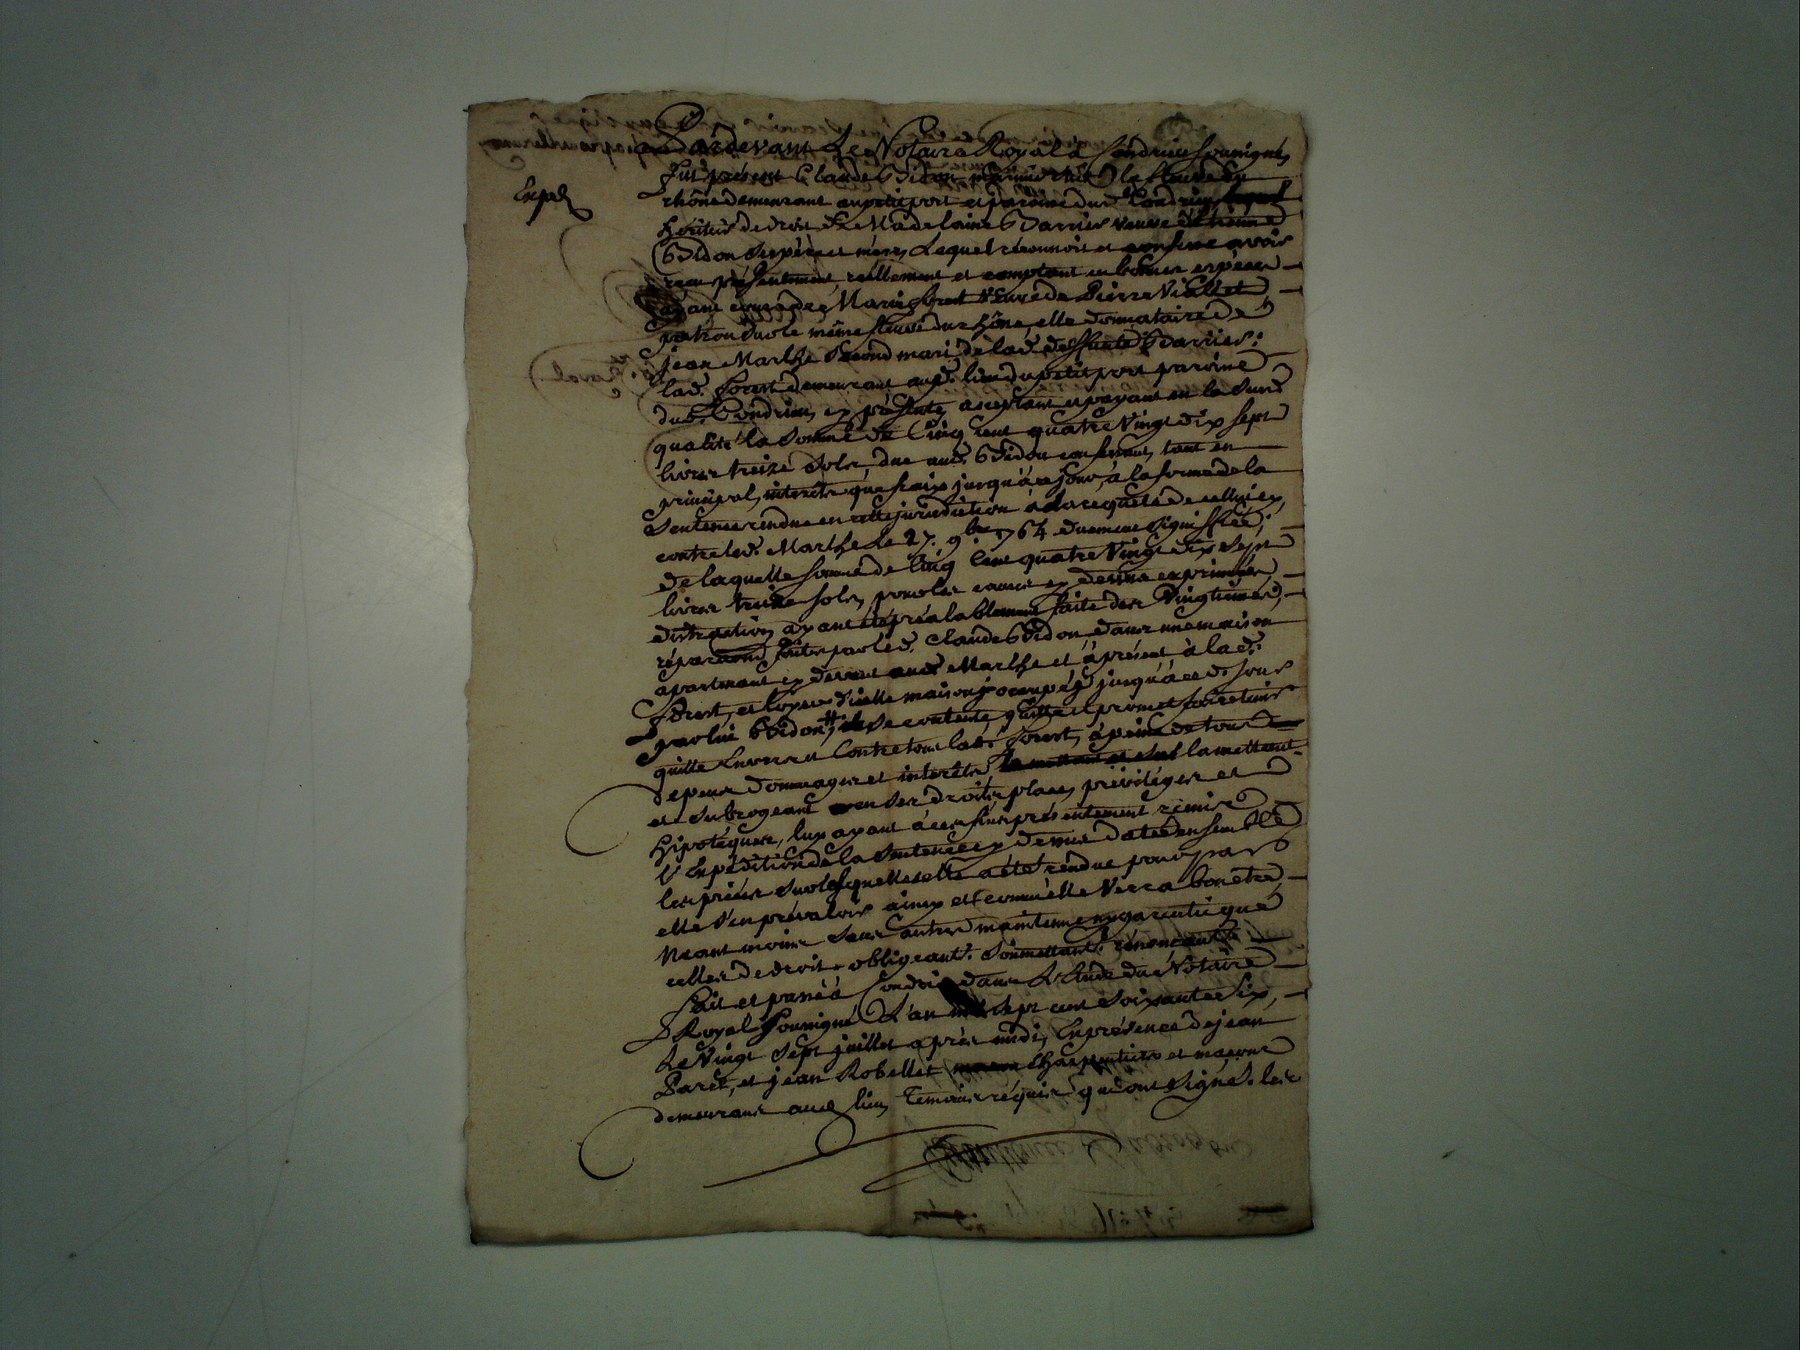 Pardevant Le Notaire Royal à Condrieu soussigné,
Expé
Fut présent Claude Bidon marinier sur le fleuve du
rhône demeurant au petit port et paroisse dud. Condrieu
héritier de droit de Madelaine Darrier veuve d'Etienne
Bidon ses père et mere, Lequel reconnoit et confesse avoir
reçu présentement, réellement et comptant en bonnes espèces
ayant cours de Marie forest veuve de Pierre Viallet,
patron sur le même fleuve du rhône, elle donnataire de
jean Marthe second mari de lad. deffunte Darrier;
lad. forest demeurant aud. lieu du petit port paroisse
dud. Condrieu, cy présente, acceptant et payant en la susd.
qualité la somme de Cinq cent quatre Vingt dix sept
livres treize sols, due aud. Bidon confessant, tant en
principal, interets que fraix jusqu'à ce jour, à la forme de la
Sentence rendue en cette jurisdiction à la requete de celluy cy,
contre led. Marthe le 27. 9bre 1764 duement signiffiée;
de laquelle somme de Cinq Cent quatre Vingt dix sept
livres treize sols, pour les causes cy dessus exprimées,
distraction ayant été préalablement faite des Vingtiemes,
réparations faites par led. Claude Bidon, dans une maison
apartenant cy devant aud. Marthe et à présent à lad.
forest, et loyers d'icelle maison occupée jusqu'à ced. jour
par lui Bidon, il se contente, quitte et promet faire tenir
quitte Envers et Contre tous lad. forest, à peine de tous
depens dommages et interêts, la mettant
et subrogeant en ses droits, places, privilèges et
hipotéques, luy ayant à ces fins présentement remis
l'Expédition de la sentence cy dessus datée ensemble
les pièces sur lesquelles elle a été rendue pour par
elle s'en prévaloir ainsy et comme elle verra bon etre,
Neantmoins sans autre maintenue ny garantie que
celles de droit. obligeants. soumettants. rénonçants.
Fait et passé à Condrieu dans L'Etude du Notaire
Royal soussigné L'an mil sept cent soixante six,
Le Vingt sept juillet après midi, En présence de jean
Paret, et jean Robellet charpentier et maçons
demeurans aud. lieu, Temoins réquis qui ont signé. les